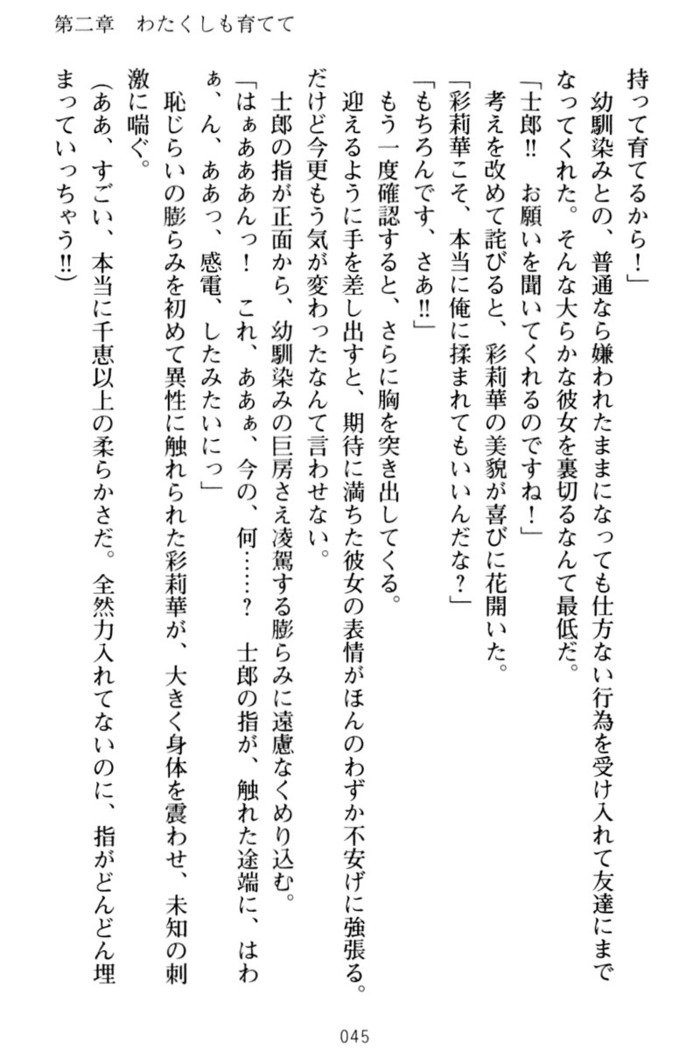 第二章　わたくしも育てて
持って育てるから！」
幼馴染みとの、普通なら嫌われたままになっても仕方ない行為を受け入れて友達にまで
なってくれた。そんな大らかな彼女を裏切るなんて最低だ。
「士郎!!　お願いを聞いてくれるのですね！」
考えを改めて詫びると、彩莉華の美貌が喜びに花開いた。
「彩莉華こそ、本当に俺に揉まれてもいいんだな？」
「もちろんです、さあ!!」
もう一度確認すると、さらに胸を突き出してくる。
迎えるように手を差し出すと、期待に満ちた彼女の表情がほんのわずか不安げに強張る。
だけど今更もう気が変わったなんて言わせない。
士郎の指が正面から、幼馴染みの巨房さえ凌駕する膨らみに遠慮なくめり込む。
「はぁあああんっ！　これ、ああぁ、今の、何……？　士郎の指が、触れた途端に、はわ
ぁ、ん、ああっ、感電、したみたいにっ」
恥じらいの膨らみを初めて異性に触れられた彩莉華が、大きく身体を震わせ、未知の刺
激に喘ぐ。
（ああ、すごい、本当に千恵以上の柔らかさだ。全然力入れてないのに、指がどんどん埋
まっていっちゃう!!）
045